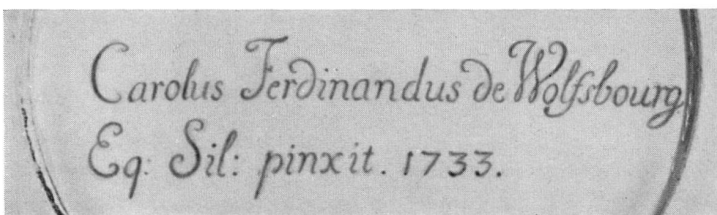 Carolus Ferdinandus de Wolfsbourg
Eq: Sil: pinxit. 1733.